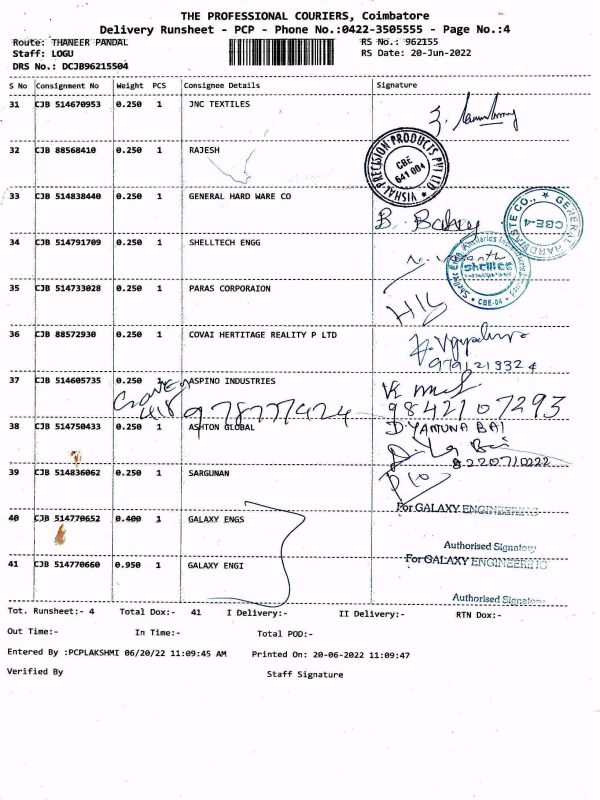 THE PROFESSIONAL COURIERS, Coimbatore
Delivery Runsheet - PCP - Phone No.:0422-3505555 - Page No.:4
Route: THANEER PANDAL RS No.: 962155
Staff: LOGU RS Date: 20-Jun-2022
DRS No.: DCJB96215504
S No Consignment No Weight PCS Consignee Details Signature
31 CJB 514670953 0.250 1 JNC TEXTILES
32 CJB 88568410 0.250 1 RAJESH
VISHAL PRECISION PRODUCTS PVT LTD
CBE
641 004
33 CJB 514838440 0.250 1 GENERAL HARD WARE CO
B. Bakey
GENERAL HARDWASTE CO., CBE-4
34 CJB 514791709 0.250 1 SHELLTECH ENGG
CBE-04
35 CJB 514733028 0.250 1 PARAS CORPORAION
36 CJB 88572930 0.250 1 COVAI HERTITAGE REALITY P LTD
9791213324
37 CJB 514605735 0.250 1 ASPINO INDUSTRIES
9842107293
38 CJB 514750433 0.250 1 ASHTON GLOBAL
D.YAMUNA BAI
8220710222
39 CJB 514836062 0.250 1 SARGUNAN
For GALAXY ENGINEERING
40 CJB 514770652 0.400 1 GALAXY ENGS
Authorised Signatory
For GALAXY ENGINEERING
41 CJB 514770660 0.950 1 GALAXY ENGI
Authorised Signatory
Tot. Runsheet:- 4 Total Dox:- 41 I Delivery:- II Delivery:- RTN Dox:-
Out Time:- In Time:- Total POD:-
Entered By :PCPLAKSHMI 06/20/22 11:09:45 AM Printed On: 20-06-2022 11:09:47
Verified By Staff Signature